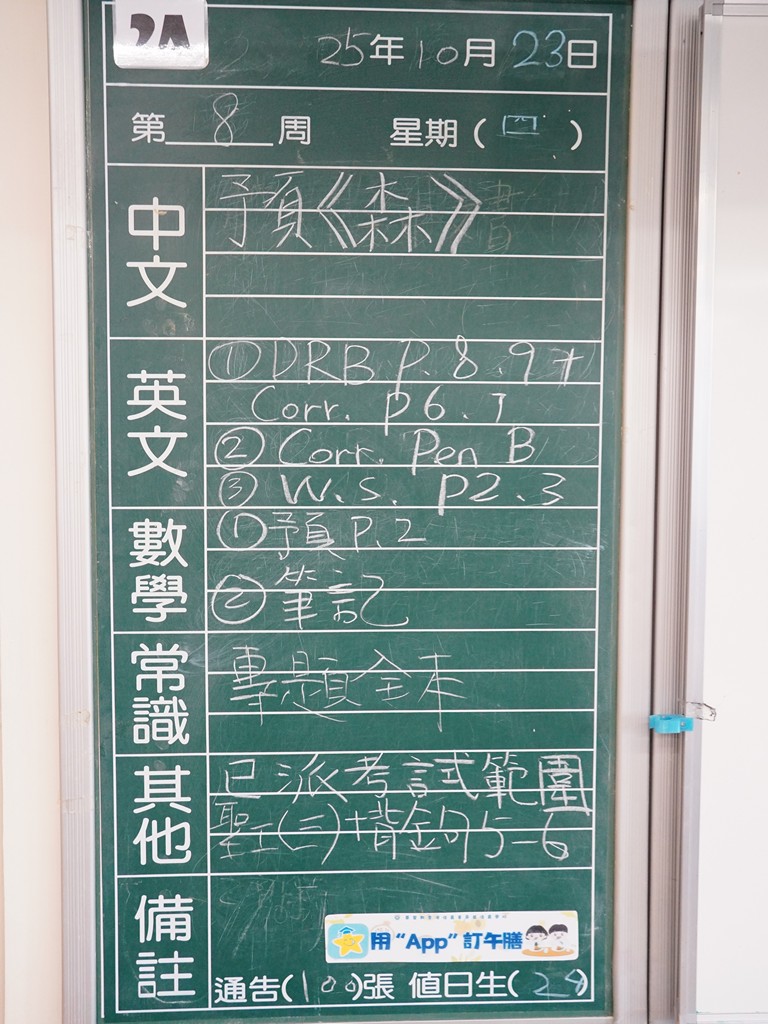 2A
25年10月23日
第8周 星期(四)
中文
預《森》
英文
①DRB P.8.9+
Corr. p6.7
② Corr. Pen B
③ W.S. p2.3
數學
①預P.2
②筆記
常識
專題全末
其他
已派考試範圍
聖工(三)+背金句5-6
備註
用“App”訂午膳
通告(100)張 值日生(28)